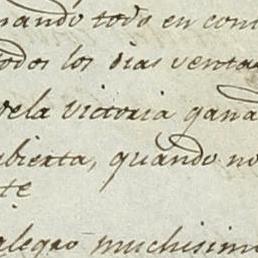 nando todo en con
odos los dias venta
vela victoria gana
bierta, quando no
te
alegro muchisimo